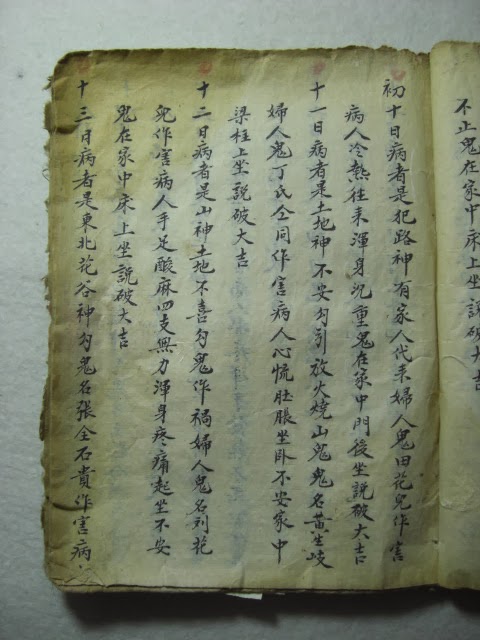 不正鬼在家中床上坐說破大吉
初十日病者是犯路神有家人代来婦人鬼田花兒作害
病人冷熱往来渾身沉重鬼在家中門後坐說破大吉
十一日病者是土地神不安勾引放火燒山鬼鬼名黃生岐
婦人鬼丁氏仝同作害病人心慌肚脹坐卧不安家中
梁柱上坐說破大吉
十二日病者是山神土地不喜勾鬼作禍婦人鬼名列花
兒作害病人手足酸麻四支無力渾身疼痛起坐不安
鬼在家中床上坐說破大吉
十三日病者是東北花谷神勾鬼名張全石貴作害病